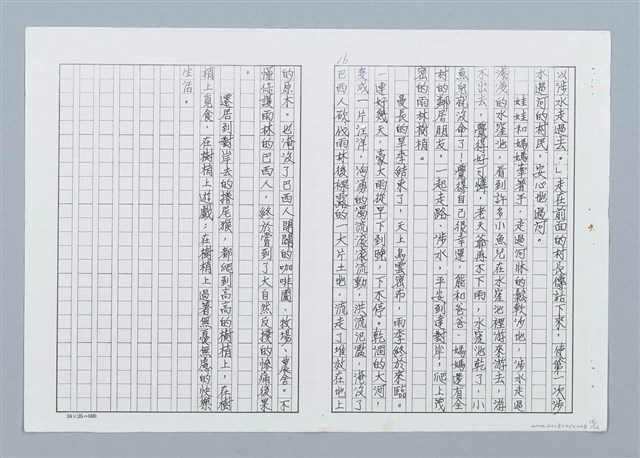 16
以涉水走過去。」走在前面的村長傳話下來，使第一次涉
水過河的村民，安心地過河。
娃娃和媽媽牽著手，走過河牀的鬆軟沙地，涉水走過
淺淺的水窪地，看到許多小魚兒在水窪池裡游來游去，游
不出去，覺得好可憐，老天爺再不下雨，水窪池乾了，小
魚兒就沒命了！覺得自己很幸運，能和爸爸、媽媽還有全
村的鄰居朋友，一起走路、涉水，平安到達對岸，爬上茂
密的雨林樹梢。
曼長的旱季結束了，天上烏雲密布，雨季終於來臨。
一連好幾天，豪大雨從早下到晚，下不停。乾涸的大河，
變成一片汪洋，洶湧的濁流滾滾流動，洪流氾濫，淹沒了
巴西人砍伐雨林後裸露的一大片土地，流走了堆放在地上
的原木。也淹沒了巴西人開闢的咖啡園、牧場、農舍。不
懂保護雨林的巴西人，終於嘗到了大自然反撲的慘痛後果
。
遷居到對岸去的捲尾猴，都爬到高高的樹梢上，在樹
梢上覓食，在樹梢上遊戲；在樹梢上過著無憂無慮的快樂
生活。
24×25=600